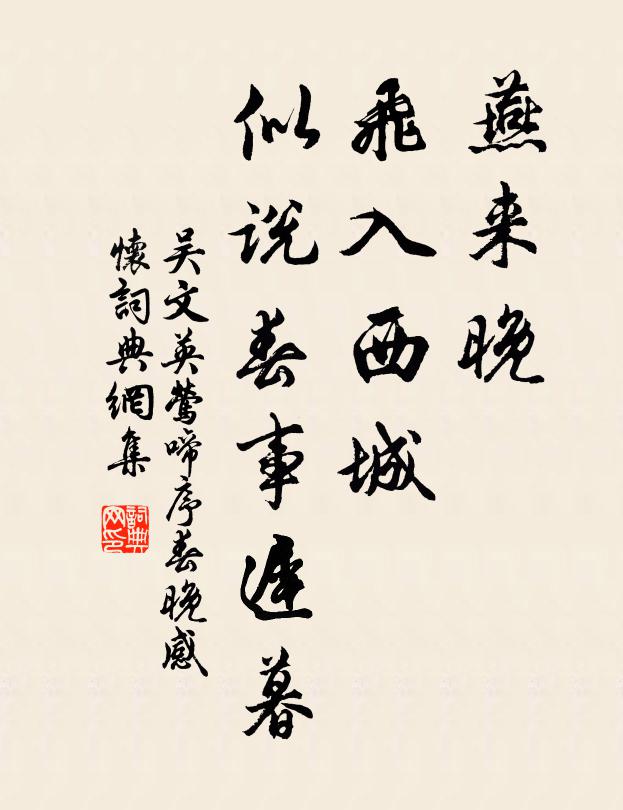 燕来晚
飛入西城
似説春事遲暮
吴文英鶯啼序春晚感
懷詞典網集
詞典網印